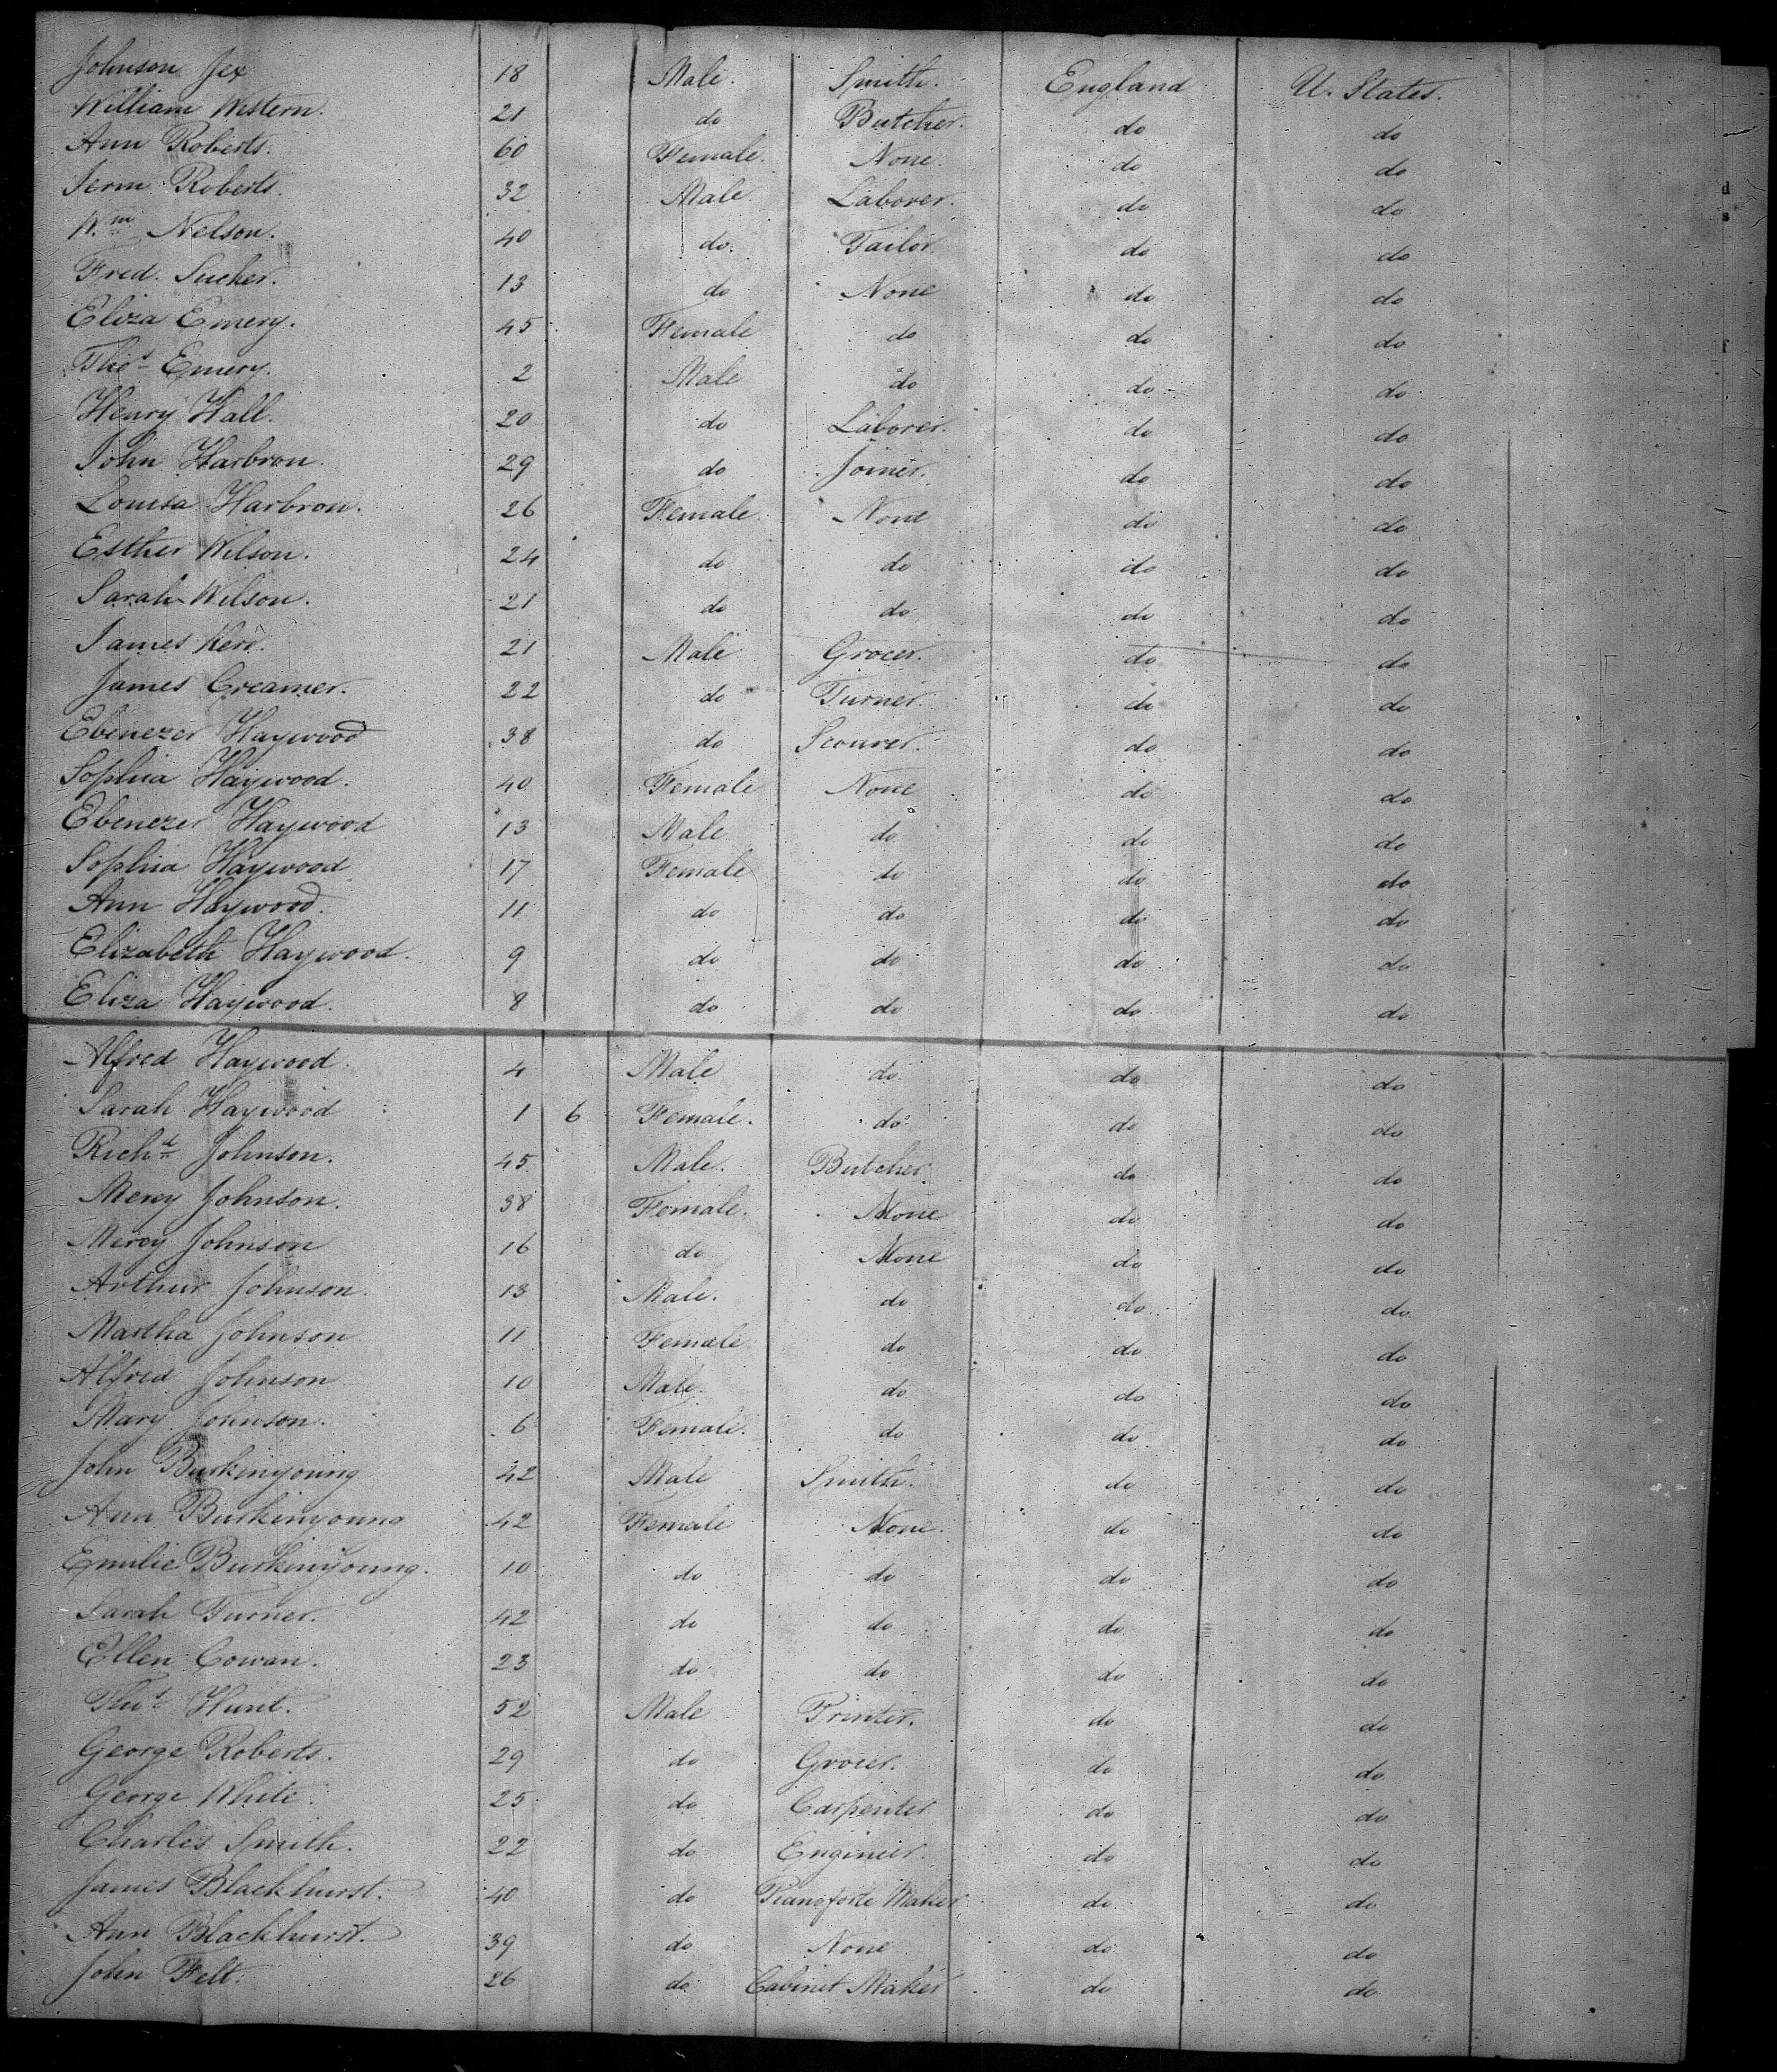 Johnson Jex 18 Male. Smith. England U. States.
William Western. 21 do Butcher. do do
Ann Roberts. 60 Female. None. do do
Jerm Roberts. 32 Male Laborer. do do
Wm Nelson. 40 do. Tailor. do do
Fred. Sucker. 13 do None do do
Eliza Emery. 45 Female do do do
Thos Emery. 2 Male do do do
Henry Hall. 20 do Laborer. do do
John Harbron. 29 do Joiner. do do
Louisa Harbron. 26 Female None do do
Esther Wilson. 24 do do do do
Sarah Wilson. 21 do do do do
James Kerr. 21 Male Grocer. do do
James Creamer. 22 do Turner. do do
Ebenezer Haywood 38 do Scourer. do do
Sophia Haywood. 40 Female None do do
Ebenezer Haywood 13 Male do do do
Sophia Haywood 17 Female do do do
Ann Haywood. 11 do do do do
Elizabeth Haywood. 9 do do do do
Eliza Haywood. 8 do do do do
Alfred Haywood. 4 Male do do do
Sarah Haywood 1 6 Female. do do do
Richd Johnson. 45 Male. Butcher. do do
Mercy Johnson. 38 Female. None do do
Mercy Johnson 16 do None do do
Arthur Johnson. 13 Male. do do do
Martha Johnson 11 Female do do do
Alfred Johnson 10 Male. do do do
Mary Johnson. 6 Female. do do do
John Burkinyoung 42 Male Smith. do do
Ann Burkinyoung 42 Female None. do do
Emilie Burkinyoung. 10 do do do do
Sarah Turner. 42 do do do do
Ellen Cowan. 23 do do do do
Thos Hunt. 52 Male Printer. do do
George Roberts. 29 do Grocer. do do
George White. 25 do Carpenter do do
Charles Smith. 22 do Engineer. do do
James Blackhurst. 40 do Pianoforte Maker do do
Ann Blackhurst. 39 do None do do
John Felt. 26 do Cabinet Maker do do